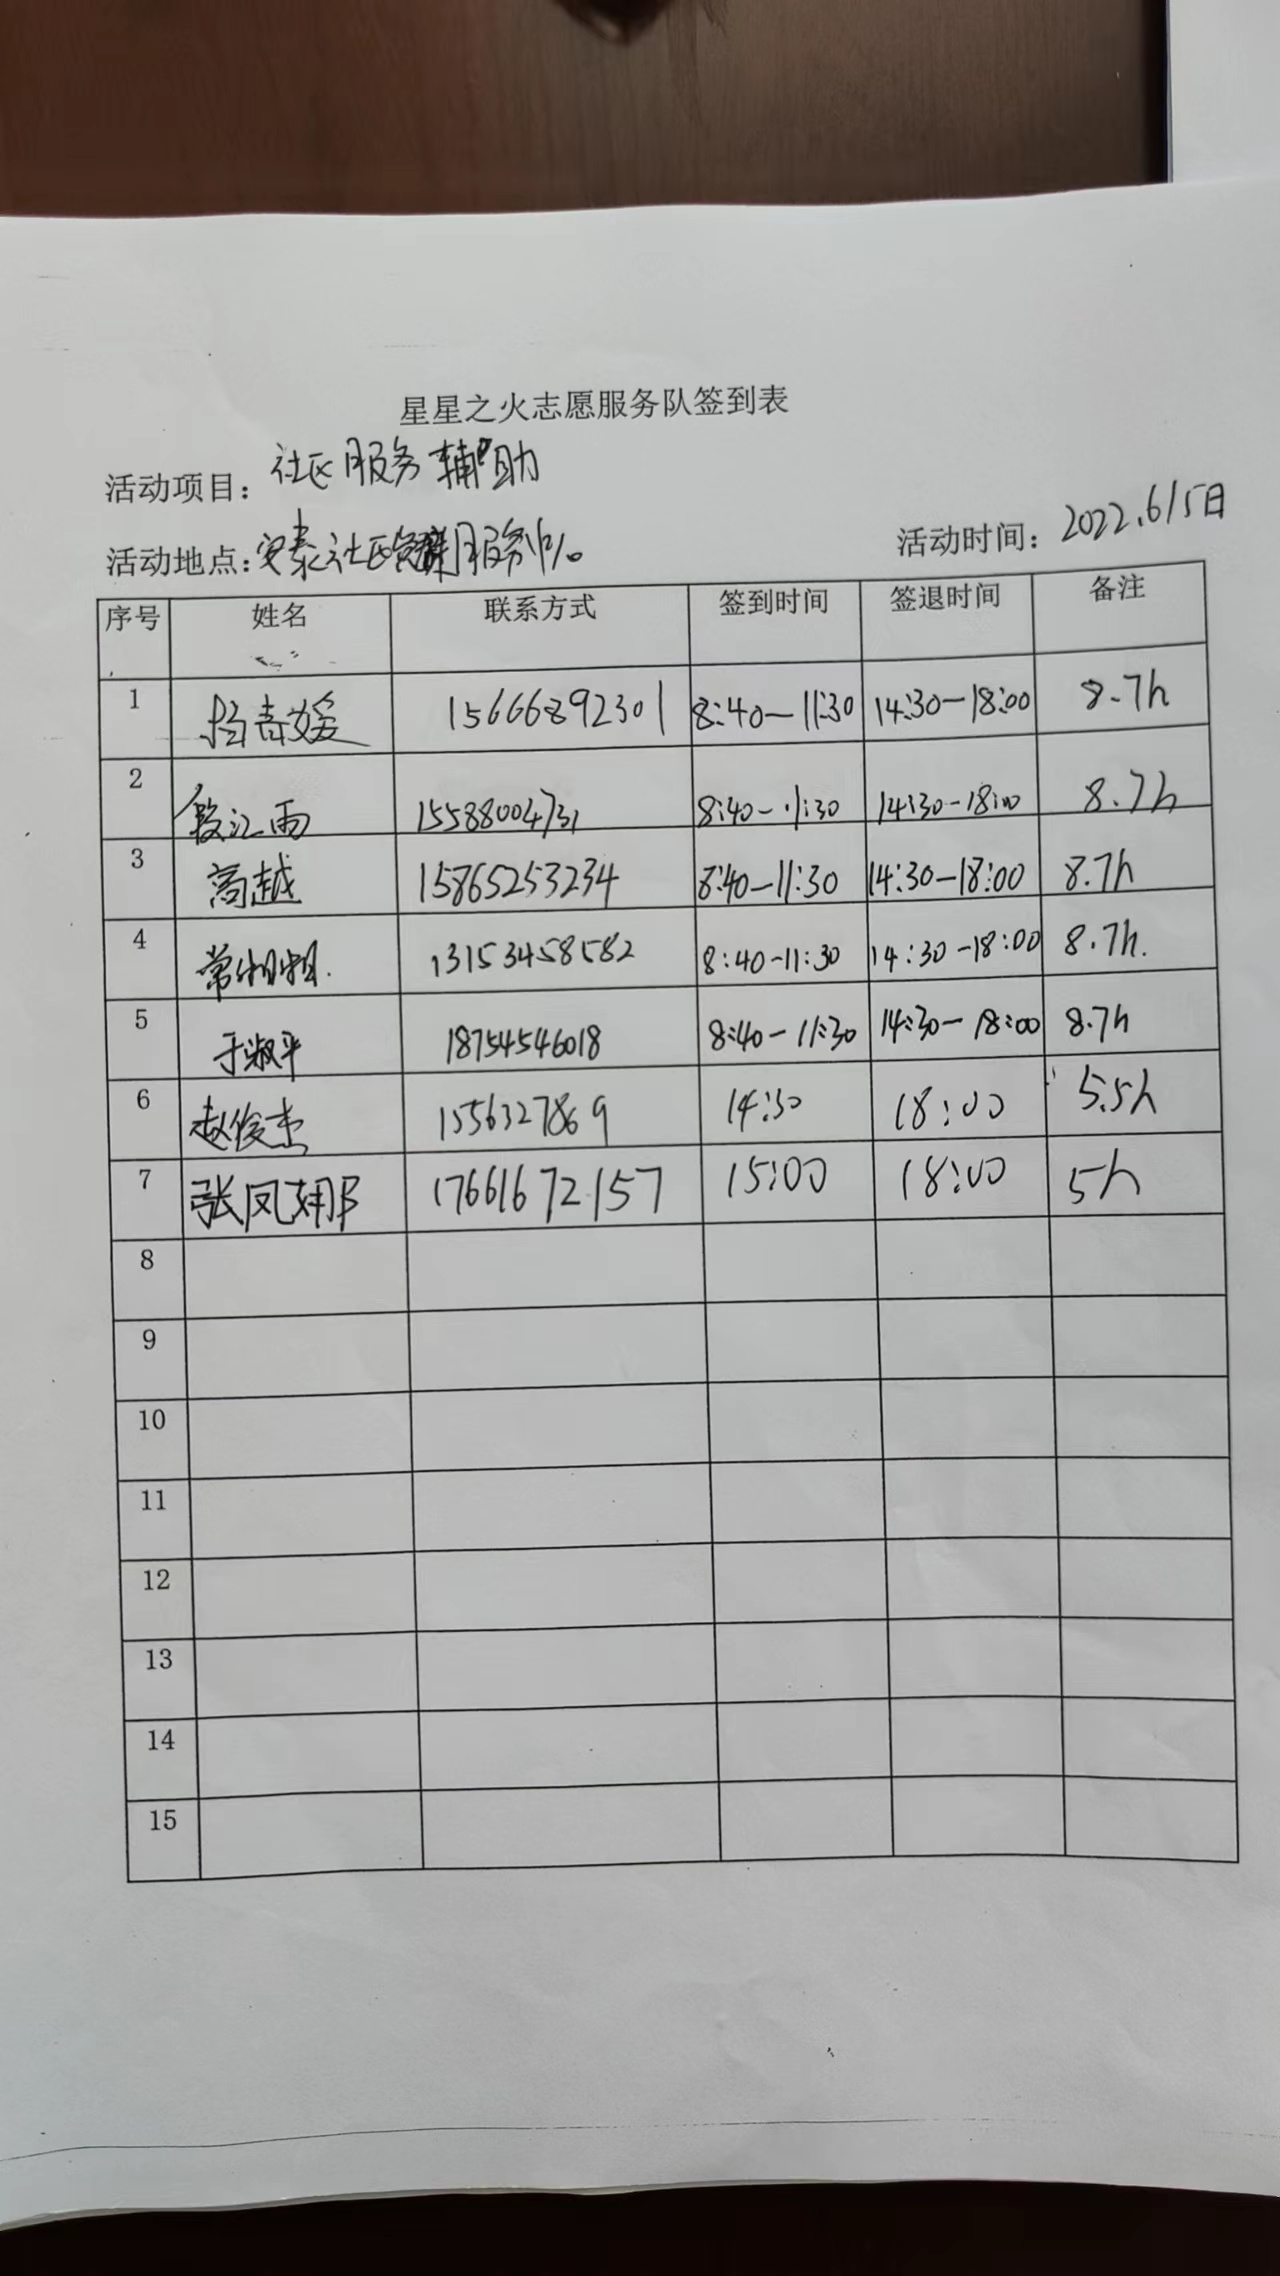 星星之火志愿服务队签到表
活动项目: 社区服务辅助
活动地点: 安泰社区党群服务中心
活动时间: 2022.6月5日
序号 姓名 联系方式 签到时间 签退时间 备注
1 杨青媛 15666892301 8:40—11:30 14:30—18:00 8.7h
2 段江雨 15588004731 8:40-11:30 14:30-18:00 8.7h
3 高越 15865253234 8:40—11:30 14:30—18:00 8.7h
4 常相相 13153458582 8:40-11:30 14:30-18:00 8.7h.
5 于淑平 18754546018 8:40-11:30 14:30-18:00 8.7h
6 赵俊杰 1556327869 14:30 18:00 5.5h
7 张凤翔 17661672157 15:00 18:00 5h
8
9
10
11
12
13
14
15